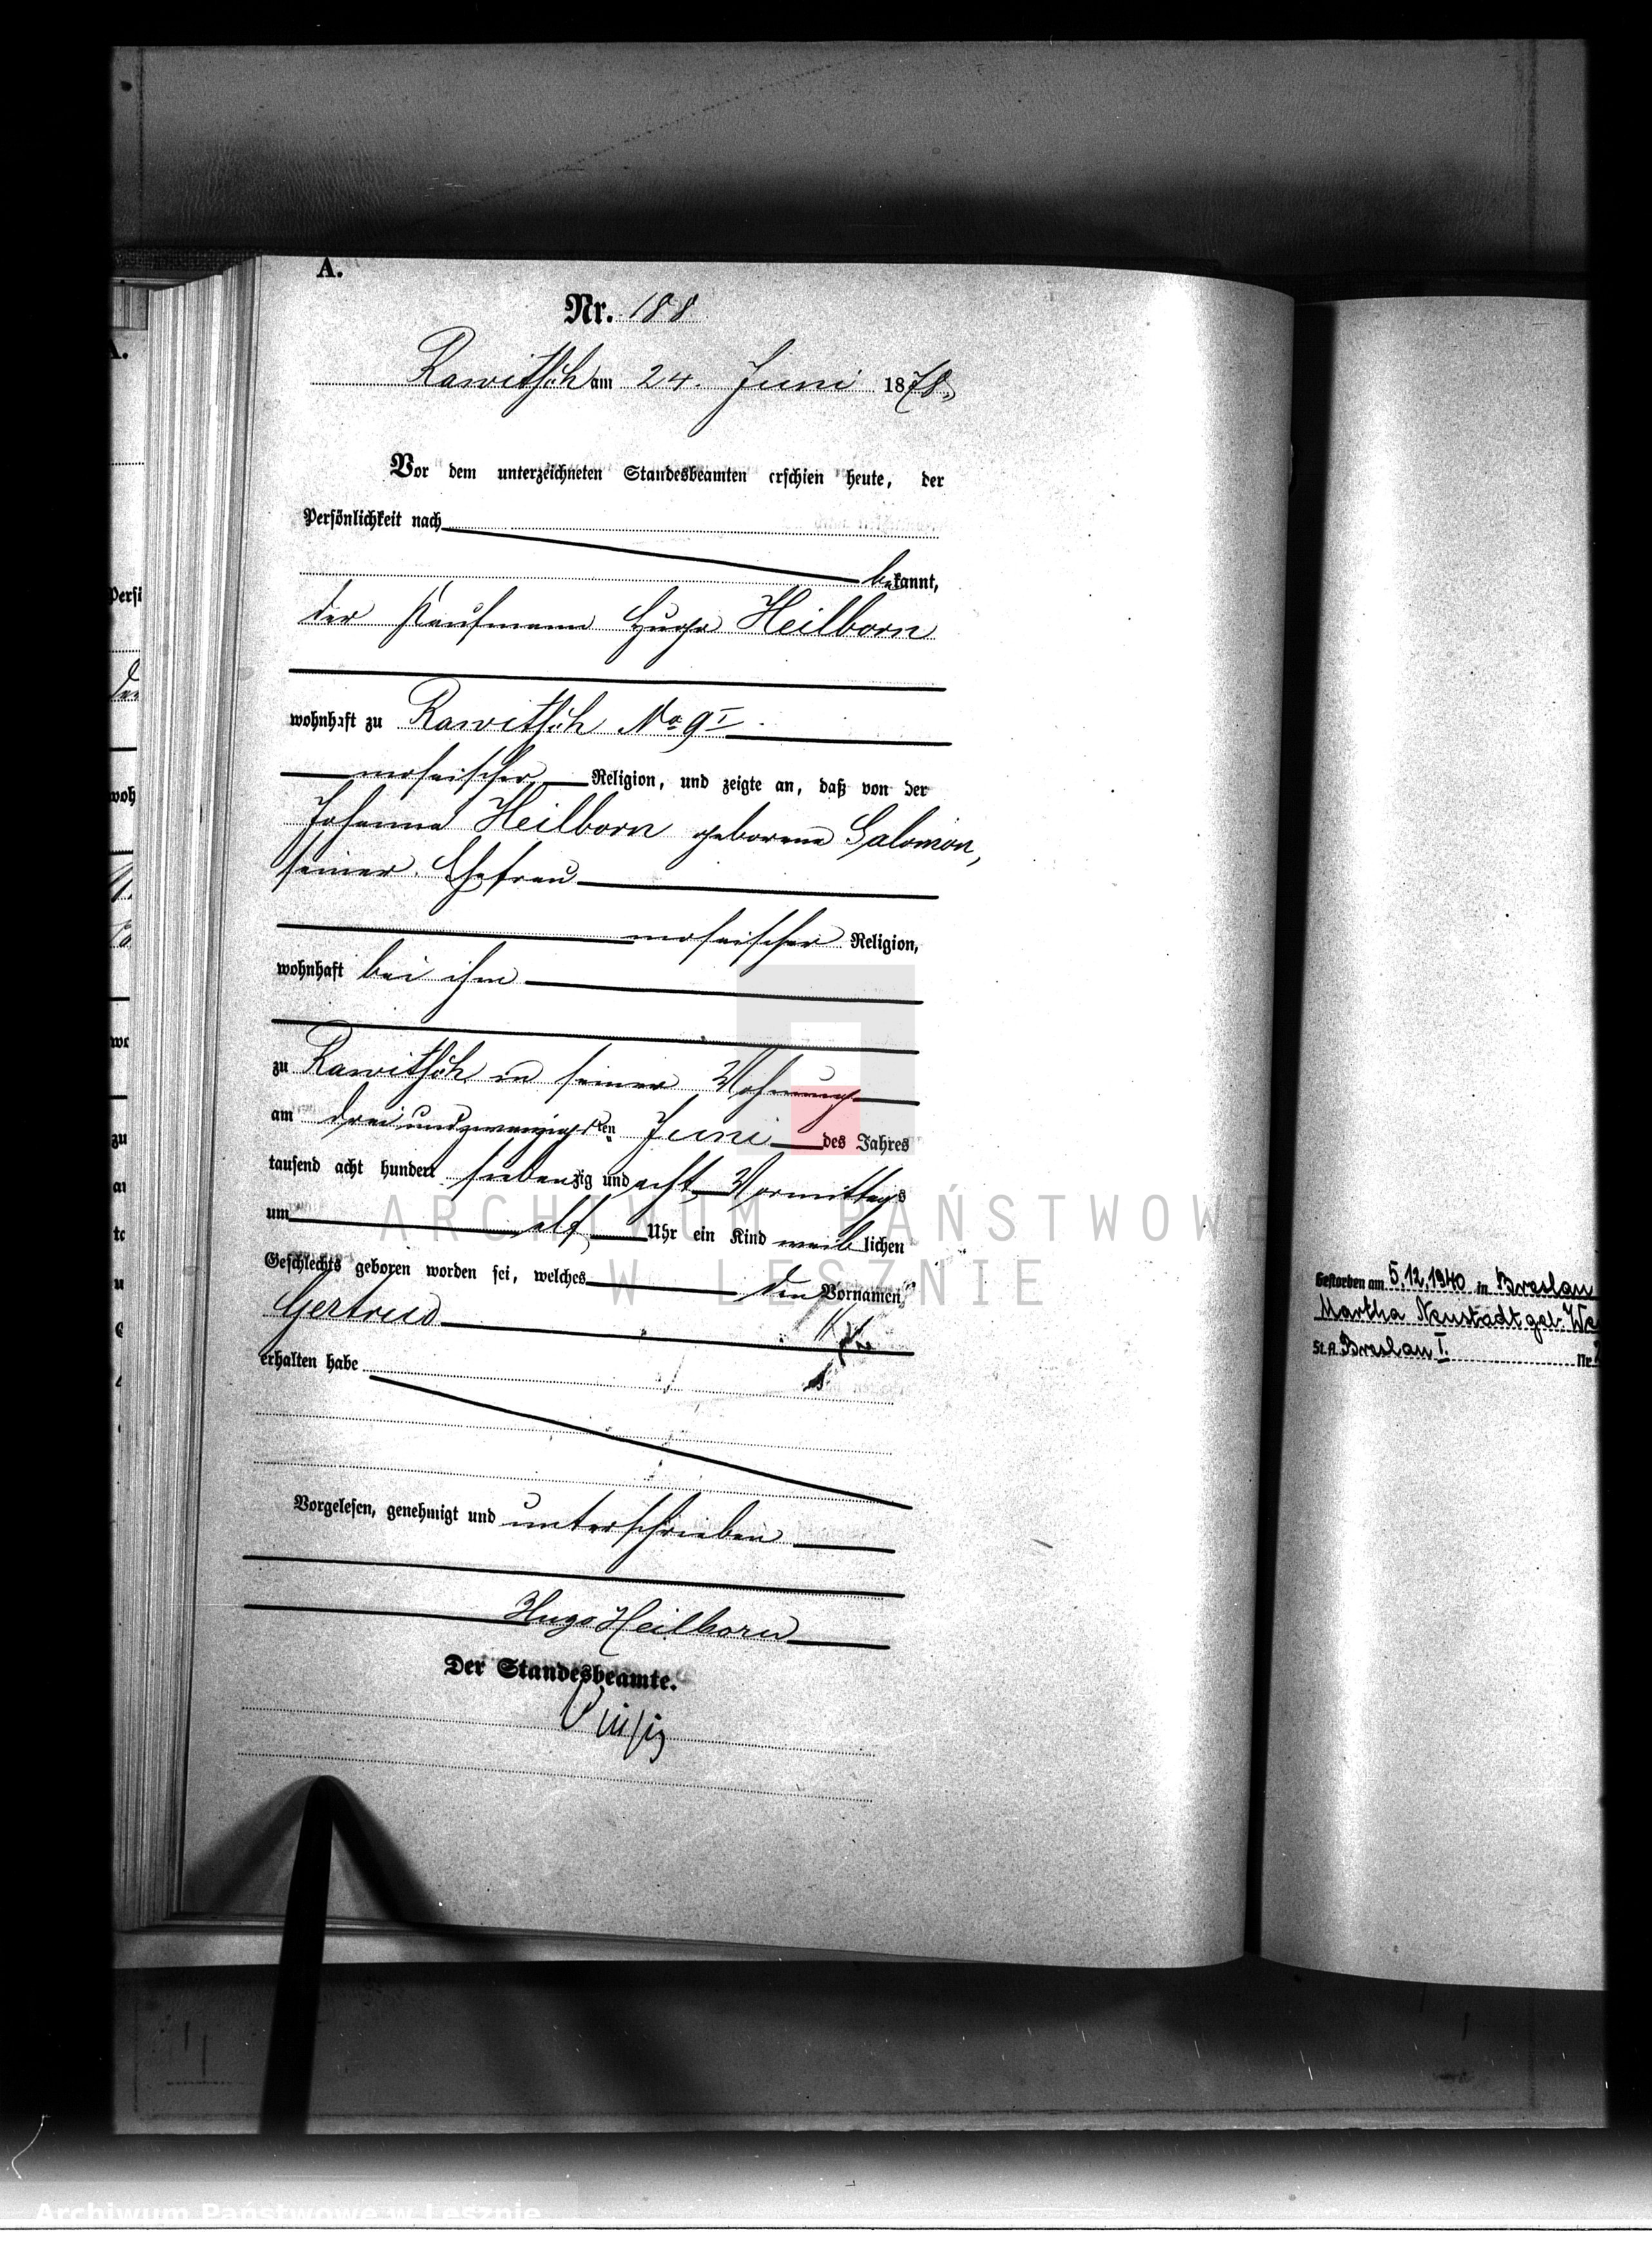 A.
Nr. 188
Rawitsch am 24. Juni 1878.
Vor dem unterzeichneten Standesbeamten erschien heute, der
Persönlichkeit nach
bekannt,
der Kaufmann Hugo Heilborn
wohnhaft zu Rawitsch No 9I
mosaischer Religion, und zeigte an, daß von der
Johanna Heilborn geborene Salomon,
seiner Ehefrau
mosaischer Religion,
wohnhaft bei ihm
zu Rawitsch in seiner Wohnung
am dreiundzwanzigsten Juni des Jahres
tausend acht hundert siebenzig und acht Vormittags
um elf Uhr ein Kind weiblichen
Geschlechts geboren worden sei, welches den Vornamen
Gertrud
erhalten habe
Vorgelesen, genehmigt und unterschrieben
Hugo Heilborn
Der Standesbeamte.
A.
Persi
woh
zu
Gestorben am 5.12.1940 in Breslau
Martha Neustadt geb. We
St.A. Breslau I. Nr.
ARCHIWUM PAŃSTWOWE
W LESZNIE
Archiwum Państwowe w Lesznie